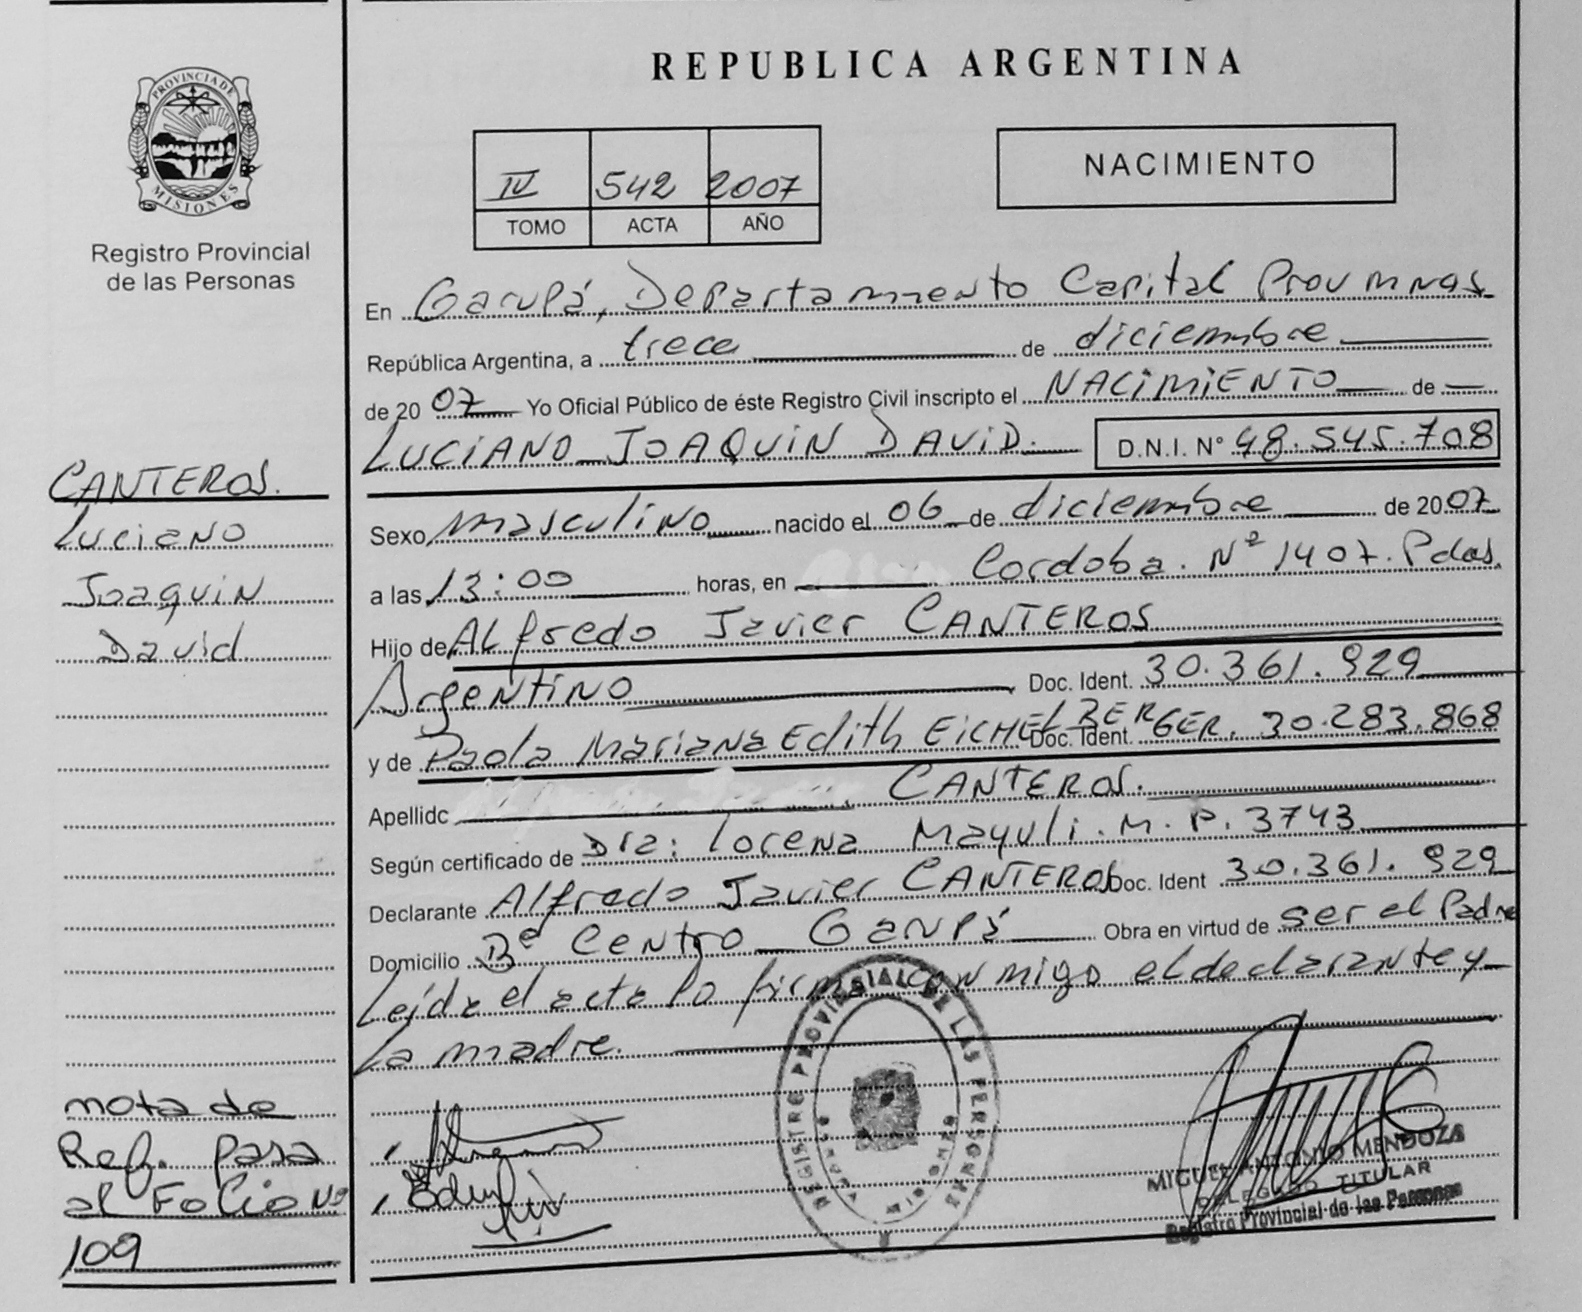 PROVINCIA DE
MISIONES
Registro Provincial
de las Personas
CANTEROS.
Luciano
Joaquin
David
nota de
Ref. Pasa
al Folio Nº
109
REPUBLICA ARGENTINA
IV 542 2007
TOMO ACTA AÑO
NACIMIENTO
En Garupá, Departamento Capital Prov Mnes
República Argentina, a trece de diciembre
de 20 07 Yo Oficial Público de éste Registro Civil inscripto el NACIMIENTO de
LUCIANO JOAQUIN DAVID. D.N.I. N° 48.545.708
Sexo masculino nacido el 06 de diciembre de 20 07
a las 13:00 horas, en Cordoba. Nº 1407. Pdas.
Hijo de Alfredo Javier CANTEROS
Argentino Doc. Ident. 30.361.929
y de Paola Mariana Edith EICHELBERGER. Doc. Ident. 30.283.868
Apellido CANTEROS.
Según certificado de Dra: Lorena Mayuli. M.P. 3743
Declarante Alfredo Javier CANTEROS Doc. Ident 30.361.929
Domicilio Bº Centro Garupá Obra en virtud de ser el Padre
Leída el acta la firma conmigo el declarante y
La madre.
REGISTRO PROVINCIAL DE LAS PERSONAS
MIGUEL ANTONIO MENDOZA
DELEGADO TITULAR
Registro Provincial de las Personas